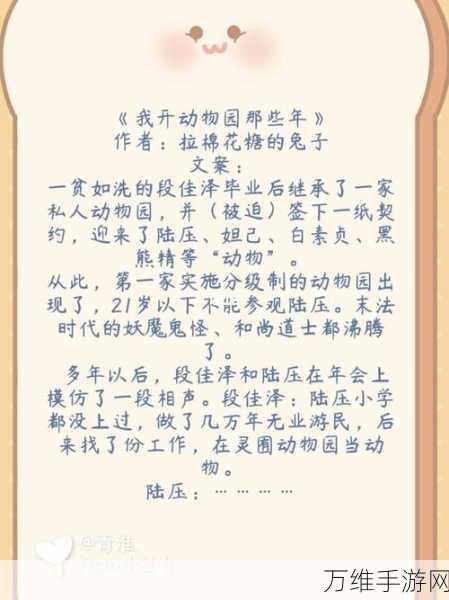 《我开动物园那些年》
作者：拉棉花糖的兔子
文案：
一贫如洗的段佳泽毕业后继承了一家
私人动物园，并（被迫）签下一纸契
约，迎来了陆压、妲己、白素贞、黑
熊精等“动物”。
从此，第一家实施分级制的动物园出
现了，21岁以下不能参观陆压。末法
时代的妖魔鬼怪、和尚道士都沸腾
了。
多年以后，段佳泽和陆压在年会上
模仿了一段相声。段佳泽：陆压小学
都没上过，做了几万年无业游民，后
来找了份工作，在灵囿动物园当动
物。
陆压：… … … …
@青淮
From小红书
万维手游网